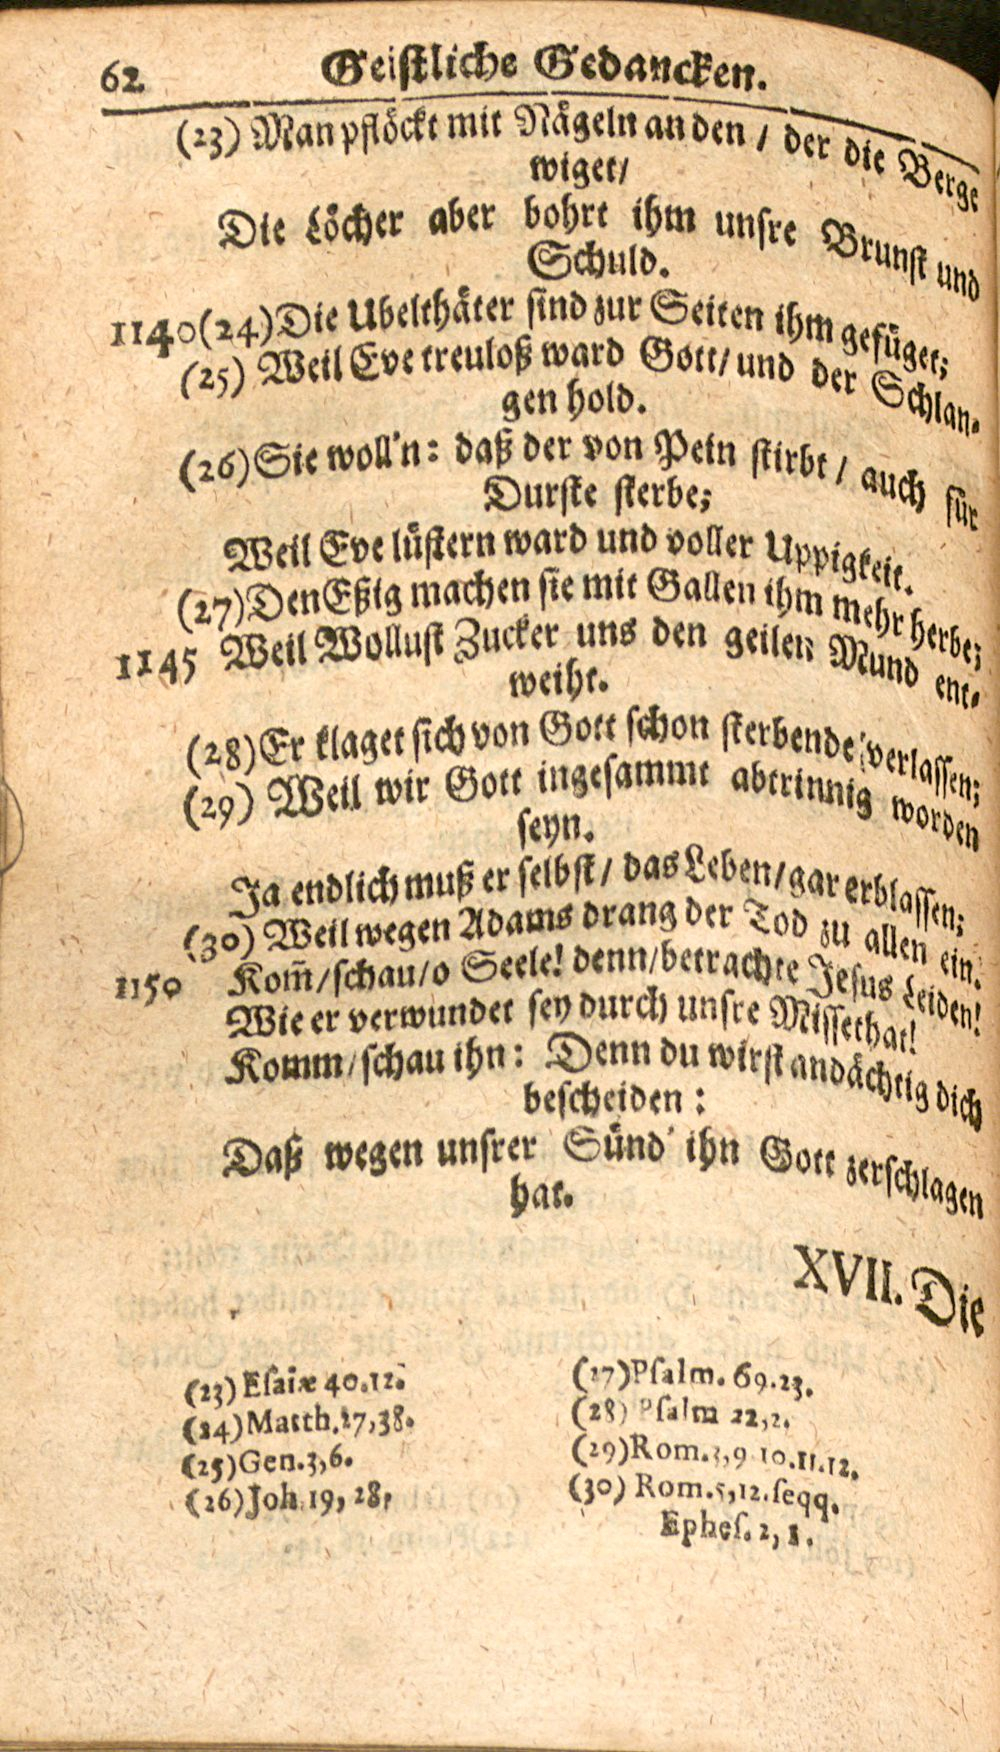 62 Geistliche Gedancken.
(23) Man pflöckt mit Nägeln an den / der die Berge
wiget/
Die Löcher aber bohrt ihm unsre Brunst und
Schuld.
1140 (24) Die Ubelthäter sind zur Seiten ihm gefüget;
(25) Weil Eve treuloß ward Gott/ und der Schlan-
gen hold.
(26) Sie woll'n: daß der von Pein stirbt / auch für
Durste sterbe;
Weil Eve lüstern ward und voller Uppigkeit.
(27) Den Eßig machen sie mit Gallen ihm mehr herbe;
1145 Weil Wollust Zucker uns den geilen Mund ent-
weiht.
(28) Er klaget sich von Gott schon sterbende verlassen;
(29) Weil wir Gott ingesammt abtrinnig worden
seyn.
Ja endlich muß er selbst/ das Leben/ gar erblassen;
(30) Weil wegen Adams drang der Tod zu allen ein.
1150 Kom̃/ schau/ o Seele! denn/ betrachte Jesus Leiden!
Wie er verwundet sey durch unsre Missethat!
Komm/ schau ihn: Denn du wirst andächtig dich
bescheiden:
Daß wegen unsrer Sünd' ihn Gott zerschlagen
hat.
XVII. Die
(23) Esaiæ 40.12.
(24) Matth. 27,38.
(25) Gen. 3,6.
(26) Joh. 19, 28.
(27) Psalm. 69.23.
(28) Psalm 22,2.
(29) Rom. 3,9 10.11.12.
(30) Rom. 5,12. seqq.
Ephes. 2, 1.